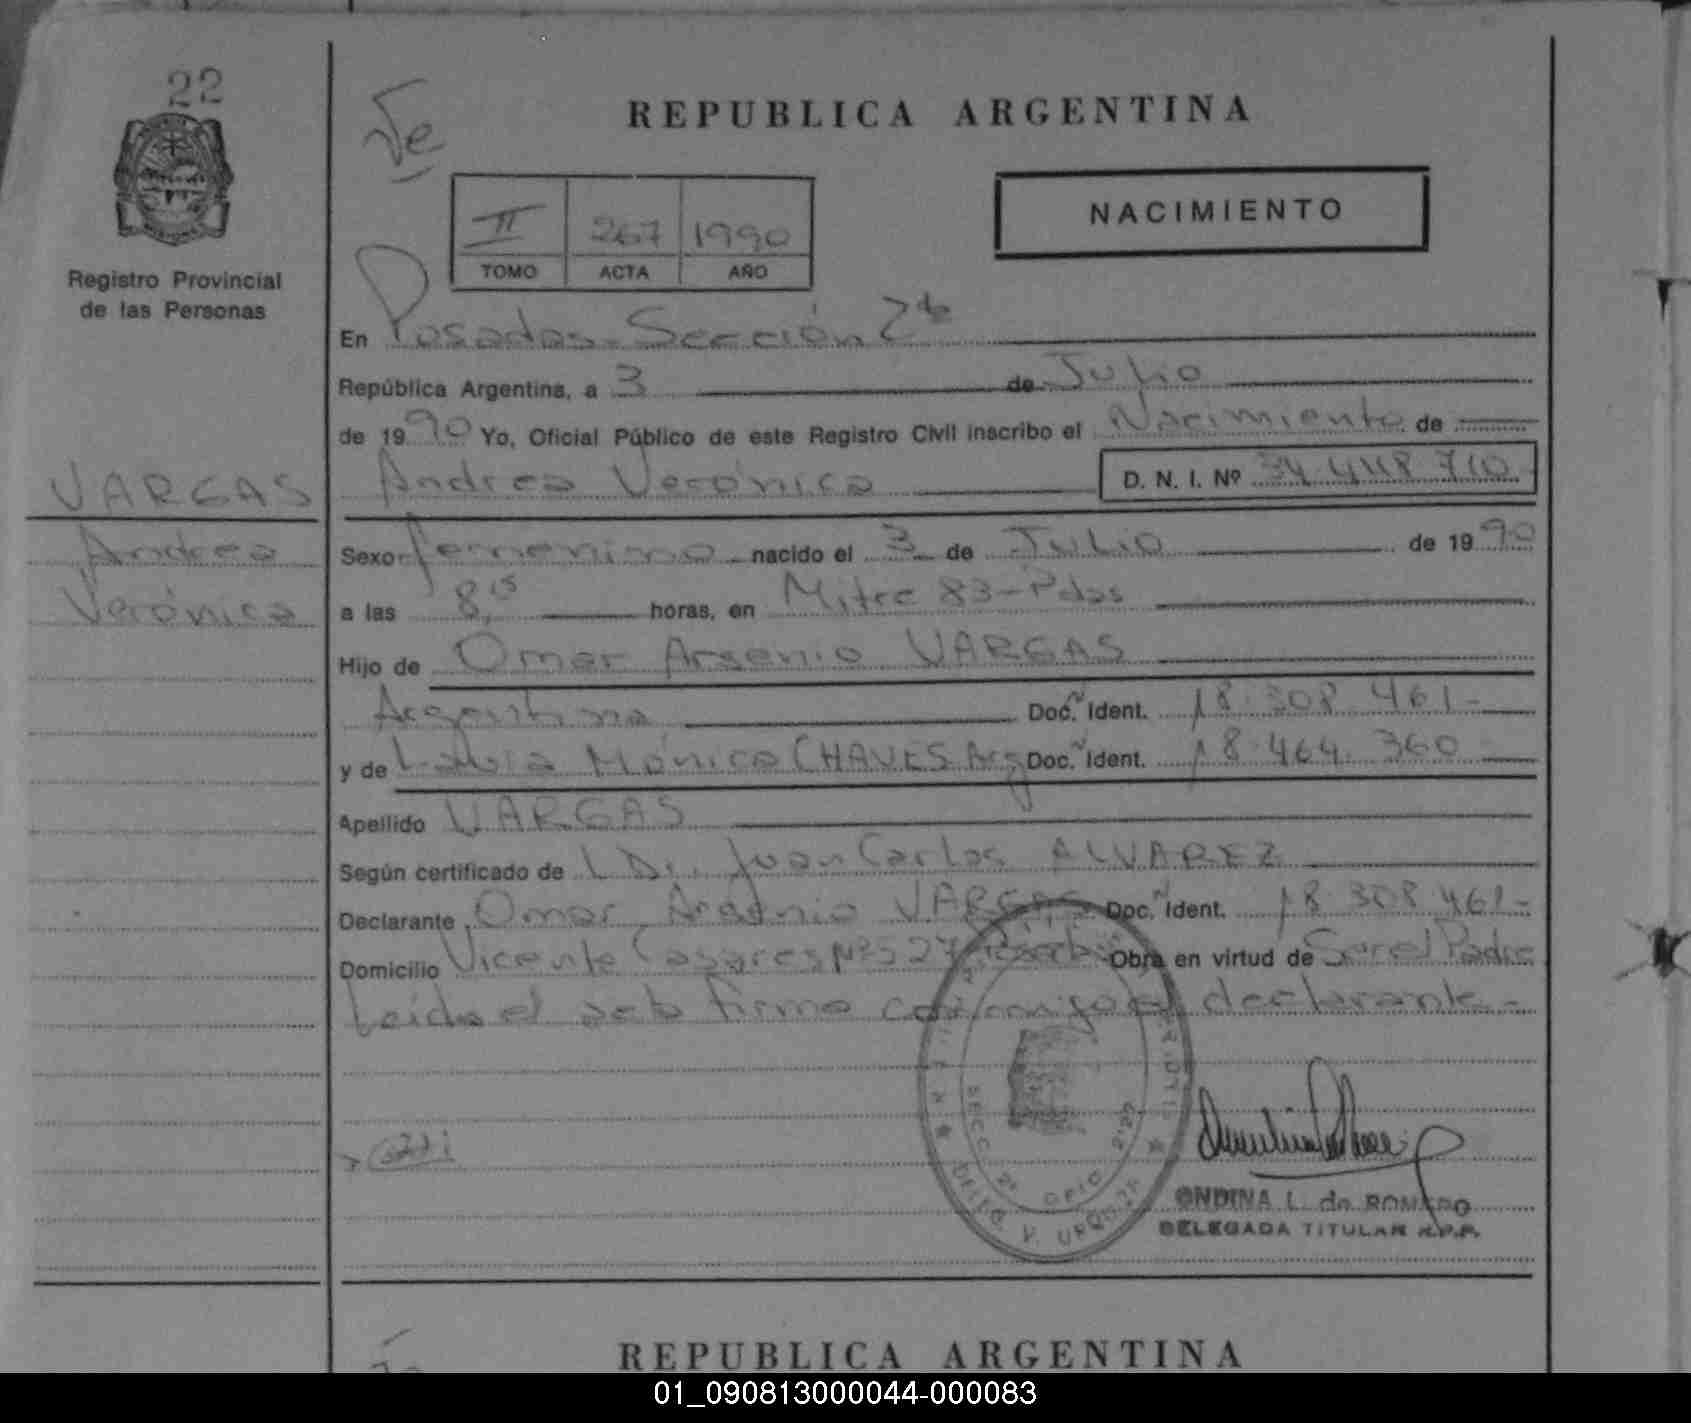 22
REPUBLICA ARGENTINA
NACIMIENTO
II 267 1990
TOMO ACTA AÑO
Registro Provincial
de las Personas
En Posadas - Sección 2da
República Argentina, a 3 de Julio
de 1990 Yo, Oficial Público de este Registro Civil inscribo el Nacimiento de
Andrea Verónica D. N. I. Nº 34.448.710
VARGAS
Andrea
Verónica
Sexo femenino nacido el 3 de Julio de 1990
a las 8,15 horas, en Mitre 83-Pdas
Hijo de Omar Arsenio VARGAS
Argentina Doc. Ident. 18.308.461-
y de Mónica CHAVES Arg Doc. Ident. 18.464.360
Apellido VARGAS
Según certificado de Dr. Juan Carlos ALVAREZ
Declarante Omar Arsenio VARGAS Doc. Ident. 18.308.461-
Domicilio Vicente Casares Nº 527 Obra en virtud de Ser el Padre
Leída el acta firma conmigo el declarante-
SECC 2ª OFIC 2127
DELEG. V. URQUIZA
ONDINA L. de ROMERO
DELEGADA TITULAR R.P.P.
REPUBLICA ARGENTINA
01_090813000044-000083